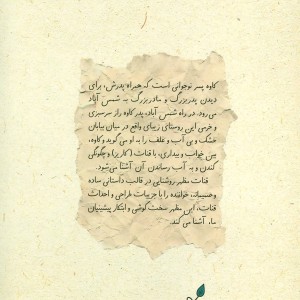 کاوه پسر نوجوانی است که همراه پدرش، برای
دیدن پدربزرگ و مادربزرگ به شمس آباد
می رود. در راه شمس آباد، پدر کاوه راز سرسبزی
و خرمی این روستای زیبای واقع در میان بیابان
خشک و بی آب و علف را به او می گوید و کاوه،
بین خواب و بیداری، با قنات (کاریز) و چگونگی
کندن و به آب رساندن آن آشنا می شود.
قنات مظهر روشنایی در قالب داستانی ساده
و صمیمانه، خواننده را با جزییات طراحی و احداث
قنات، این مظهر سخت کوشی و ابتکار پیشینیان
ما، آشنا می کند.